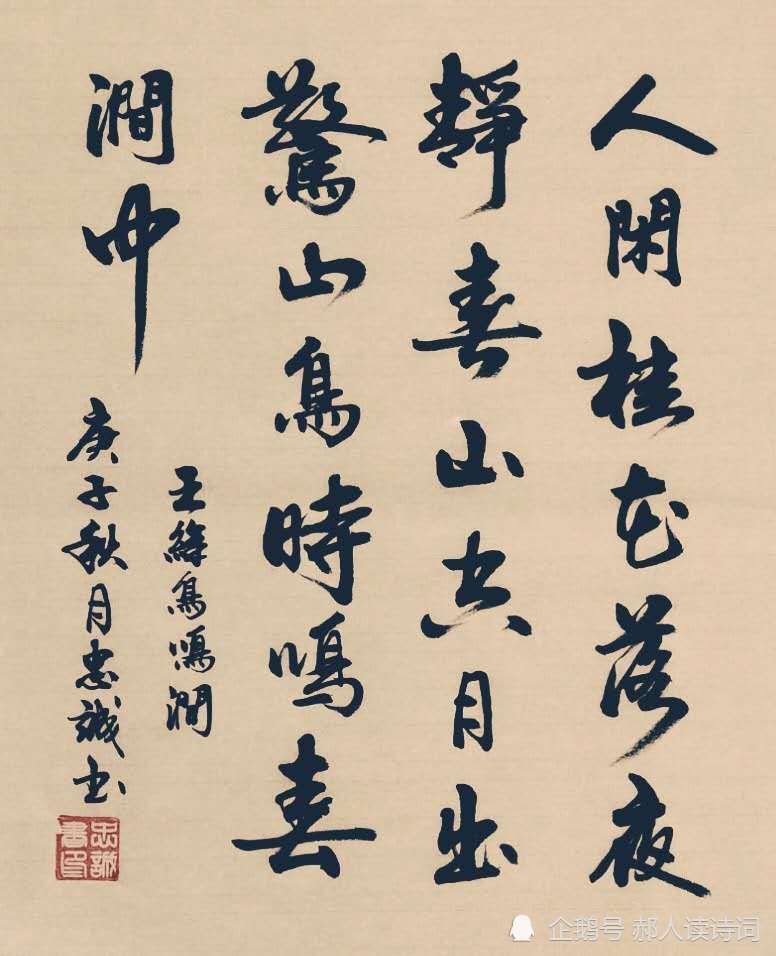 人閑桂花落夜
靜春山空月出
驚山鳥時鳴春
澗中
王維鳥鳴澗
庚子秋月忠誠書
忠誠書印
企鹅号 郝人读诗词